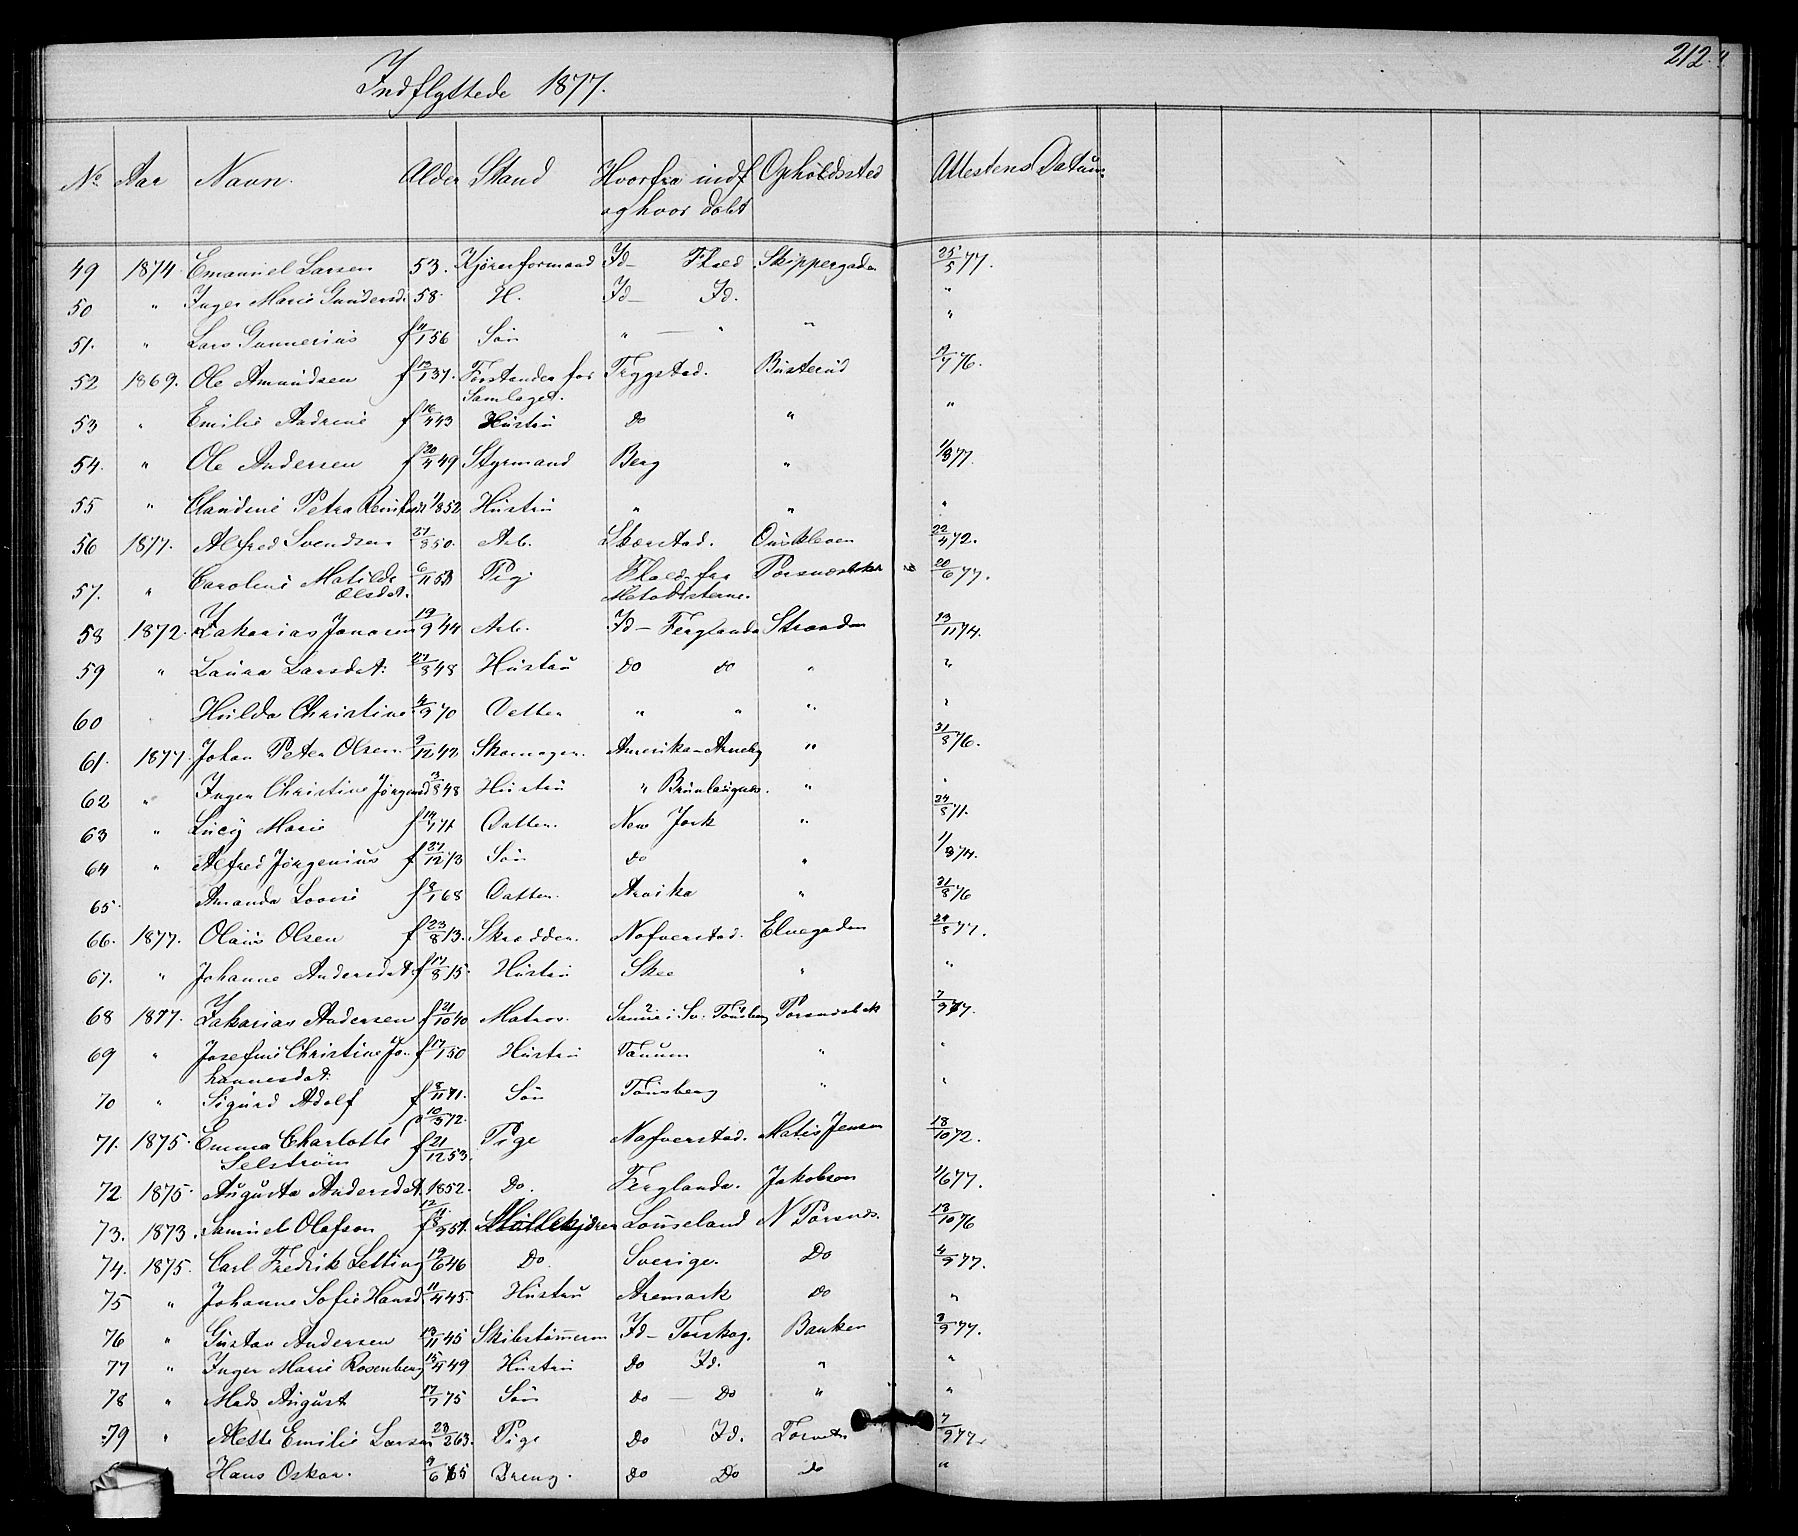 212.
Indflyttede 1877.
No Aar Navn. Alder Stand Hvorfra indf. Opholdssted Attestens Datum
og hvor døbt
49 1874. Emanuel Larsen 53. Kjøreformand Id – Skippergaden 25/5 77.
50 " Inger Marie Gundersd. 58. H. Id – Id. "
51. " Lars Gunnerius f 11/1 56 Søn " – " " "
52 1869. Ole Amundsen f 13/1 37. Forstander for Trygstad. Busterud 19/7 76.
Samlaget.
53 " Emilie Andrine f 16/4 43 Hustru Do " "
54. " Ole Andersen f 20/4 49 Styrmand Berg " 1/3 77.
55 " Claudine Petra 1/8 52 Hustru " " "
56 1877. Alfred Svendsen 27/3 50. Arb. Skjerstad. 22/4 72.
57. " Caroline Matilde 6/11 53 Pig fra 20/6 77.
Olsdat. Metodisterne.
58 1872. Zakarias Jonasen 19/9 44 Arb. Id – Ferglanda Stranden 13/11 74.
59 " Laura Larsdat. 27/8 48 Hustru Do Do " "
60 Hulda Christine 4/9 70 Datter " " " "
61. 1877. Johan Peter Olsen 9/12 42. Skomager. Amerika – " 31/8 76.
62 " Inger Christine Jørgensd 3/8 48 Hustru " Brunlaugnes. " "
63 " Lucy Marie f 14/4 71 Datter. New Jork " 24/8 71.
64 " Alfred Jørgenius f 27/12 73 Søn Do " 1/3 74.
65. Amanda Lovise f 8/1 68 Datter. Arvika " 31/8 76
66. 1877. Olaus Olsen f 23/8 13. Skrædder. Nafverstad. Elvegaden 29/8 77.
67. " Johanne Andersdat. f 17/8 15. Hustru Skee " "
68 1877. Zakarias Andersen f 21/10 40 Matros. Sannæ i Sv. Tønsberg Torsnæsbak 7/3 77.
69 " Josefine Christine Jo- f 17/1 50 Hustru Tanum " "
hannesdat.
70 " Sigurd Adolf f 8/11 71. Søn Tønsberg " "
D 10/3 72.
71. 1875. Emma Charlotte f 21/12 53. Pige Nafverstad. Matis Jensen 18/10 72.
Selstrøm
72 1875. Augusta Andersdat. 1852. Do. Ferglanda. Jakobsen 1/6 77.
73. 1873. Samuel Olafsen N. Torsnæs. 13/10 76
74. 1875. Carl Fredrik Setting 19/6 46 Do. Sverige. Do 4/9 77.
75 " Johanne Sofie Hansd. 11/4 45. Hustru Aremark Do "
76 " Gustav Andersen 13/11 45 Skibstømmerm Id – Torskog. Banken 3/9 77.
77 " Inger Marie Rosenberg 15/4 49 Hustru Do Id. " "
78 " Mads August 17/7 75 Søn Do – Do " "
79 " Mette Emilie Larsen 23/2 63. Pige Do Id. Torvet 7/9 77.
Hans Oskar. 9/6 65 Dreng. Do Do Do "